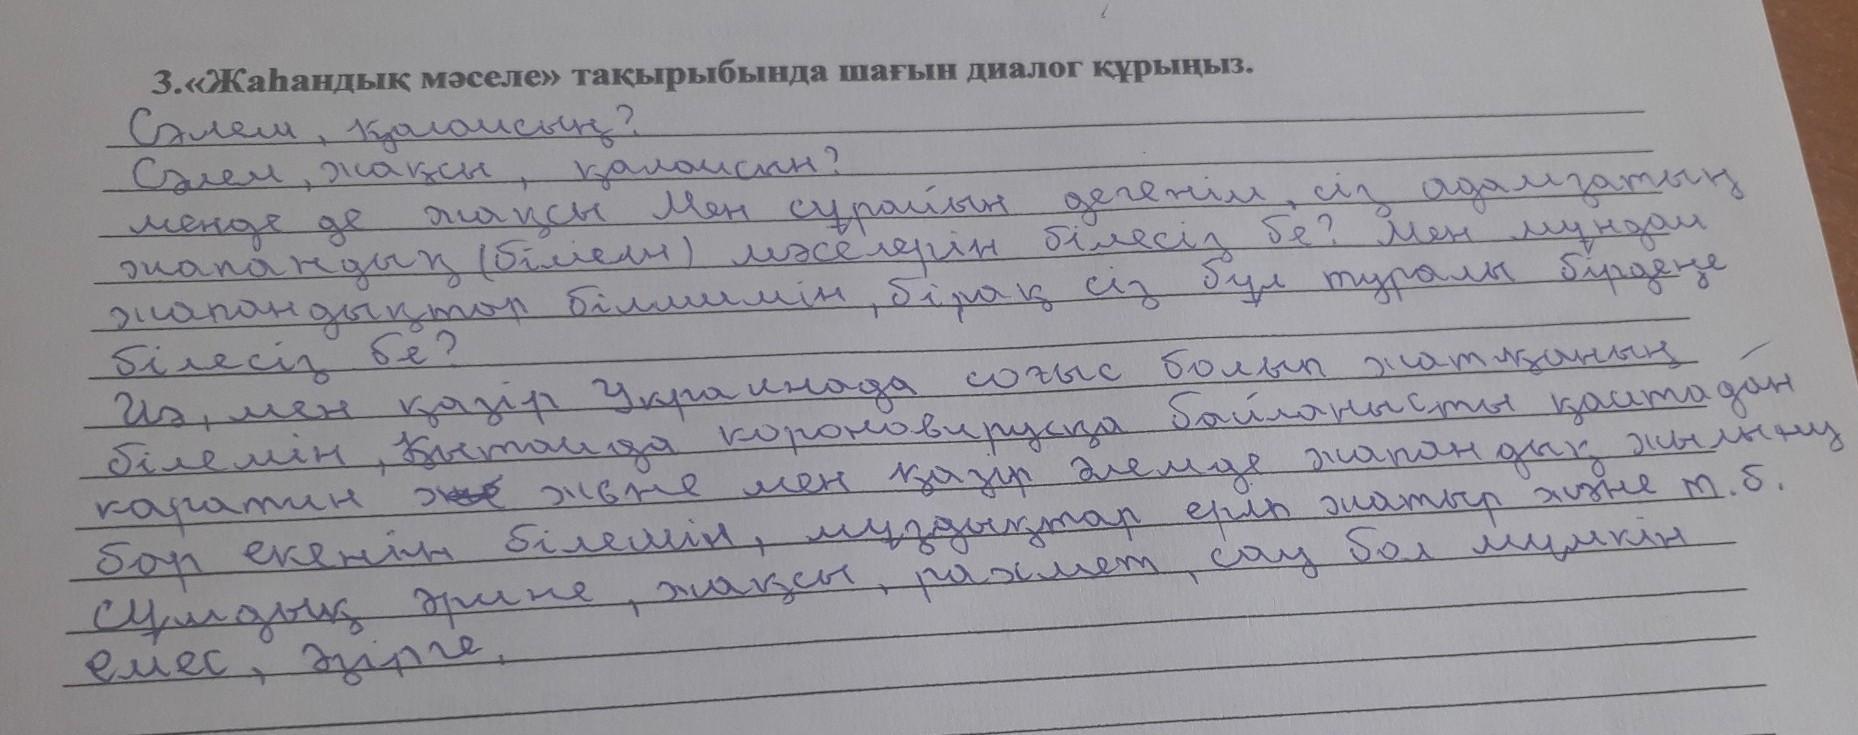 3.«Жаһандық мәселе» тақырыбында шағын диалог құрыңыз.
Сәлем, қалайсың?
Сәлем, жақсы, қалайсын?
менде де жақсы Мен сұрайын дегенім, сіз адамзатың
жапандық (білмеен) мәселерін білесіз бе? Мен мұндай
жапандықтар білмимін, бірақ сіз бұл туралы бірдеңе
білесіз бе?
Иә, мен қазір Украинада соғыс болып жатқаның
білемін, Қытайда короновирусқа байланысты қайтадан
каратин және мен қазір әлемде жапандық жылыну
бар екенін білемін, мұздықтар еріп жатыр және т.б.
Сұмдық әрине, жақсы, рахмет, сау бол мүмкін
емес, әзірге.